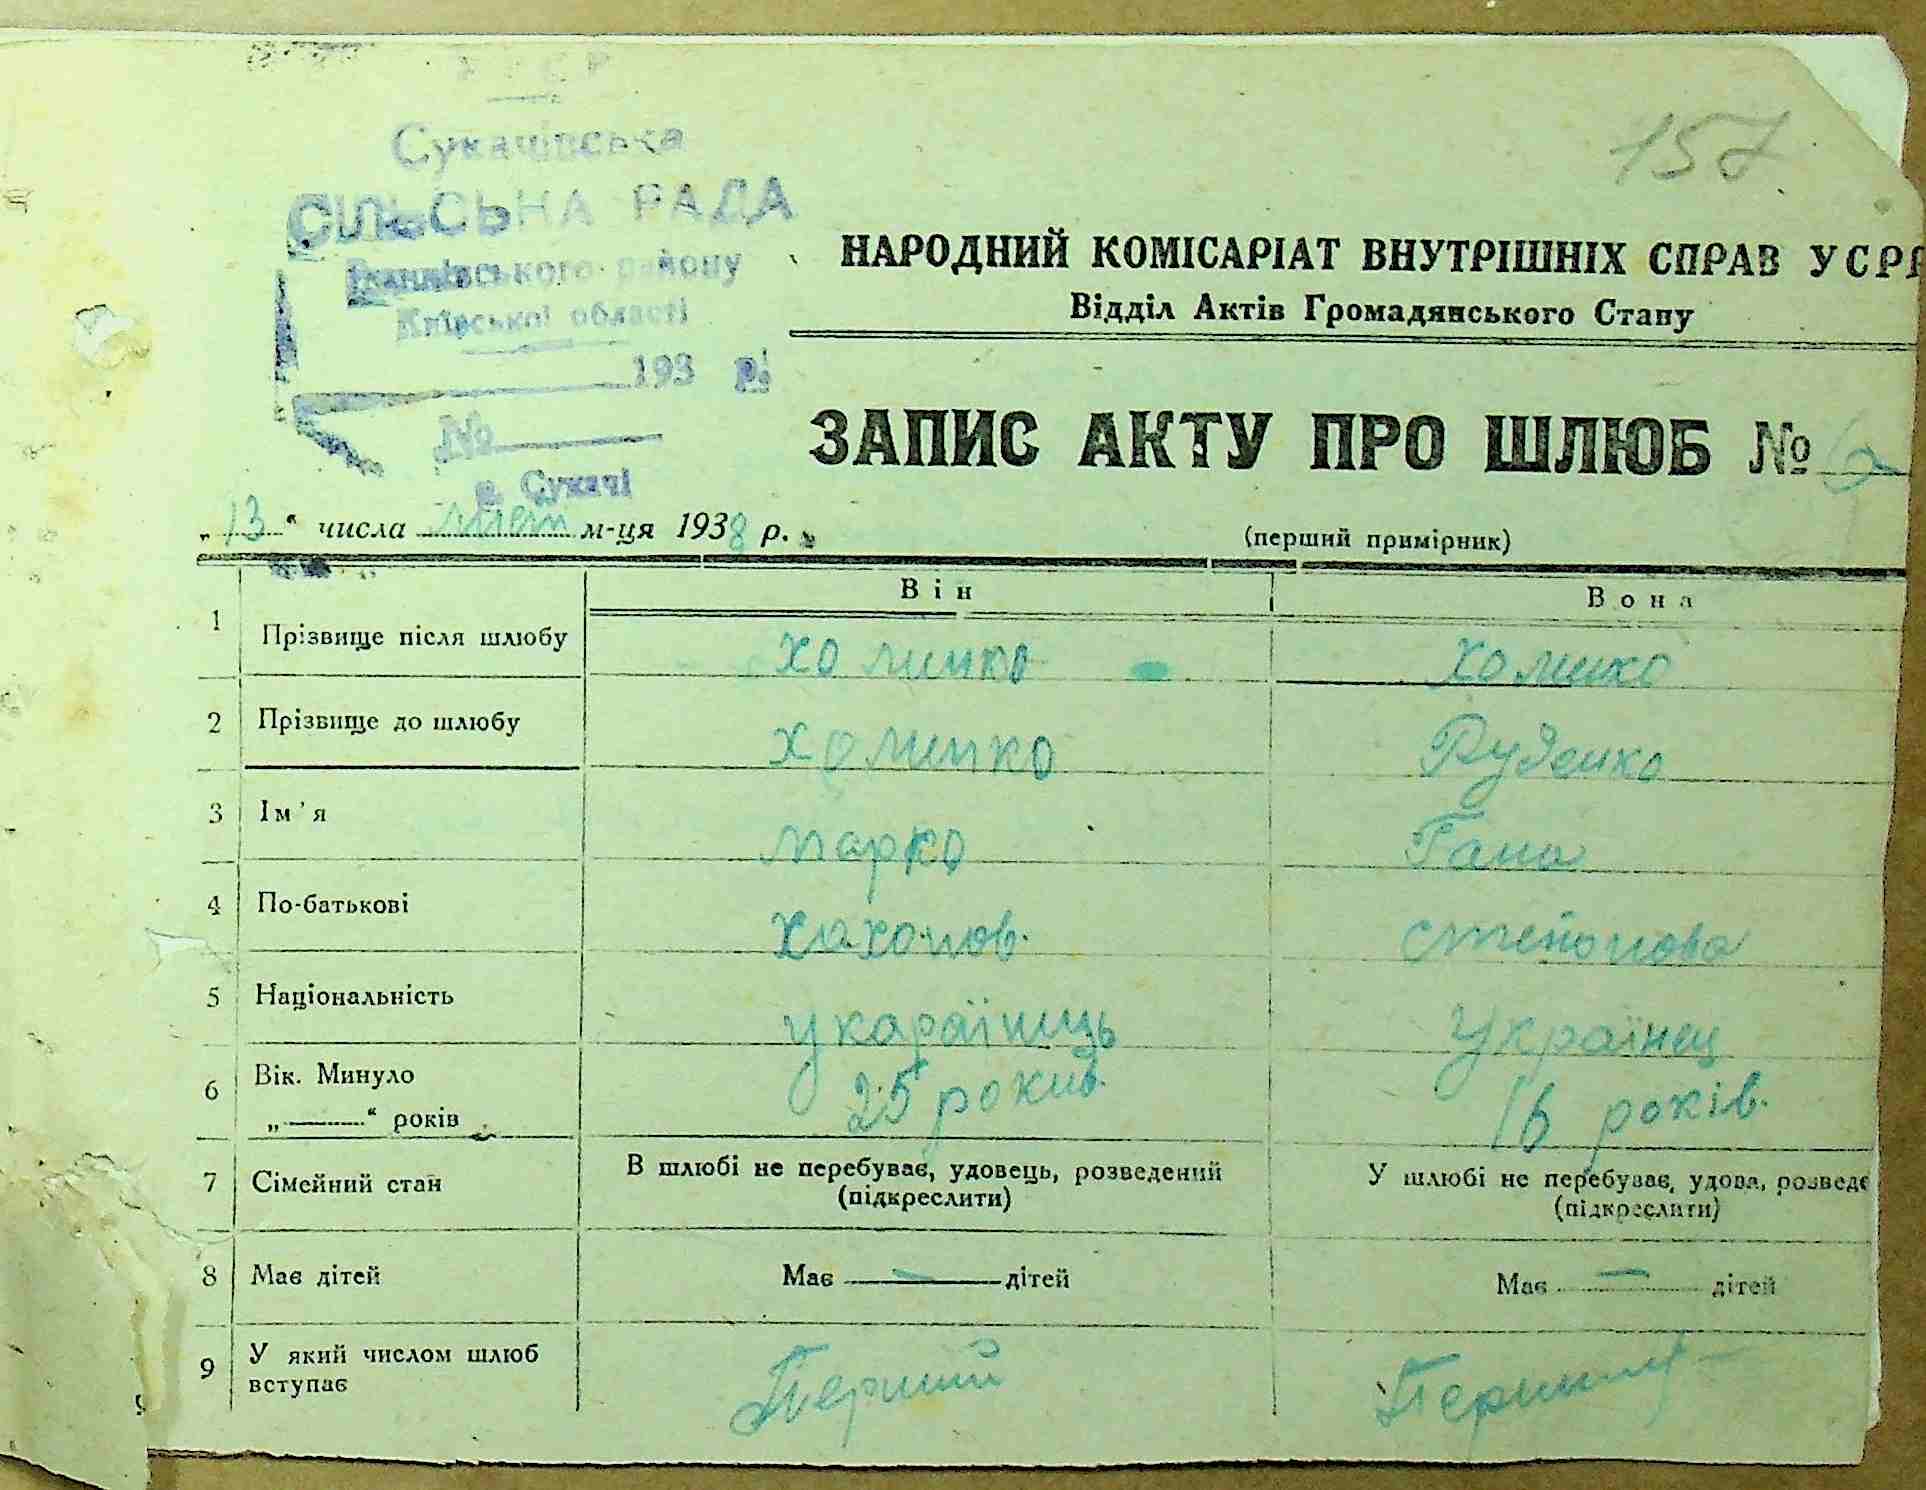 УСРР
157
Сукачівська
СІЛЬСЬКА РАДА
Іванківського району
Київської області
193 р.
№
с. Сукачі
НАРОДНИЙ КОМІСАРІАТ ВНУТРІШНІХ СПРАВ УСРР
Відділ Актів Громадянського Стану
ЗАПИС АКТУ ПРО ШЛЮБ №
„13“ числа м-ця 1938 р.
(перший примірник)
Він Вона
1 Прізвище після шлюбу Хоминко Хомико
2 Прізвище до шлюбу Хоминко Руденко
3 Ім'я Марко Гана
4 По-батькові степонова
5 Національність украіниць Українец
6 Вік. Минуло „ “ років 25 рокив. 16 років.
7 Сімейний стан В шлюбі не перебуває, удовець, розведений (підкреслити) У шлюбі не перебуває, удова, розведе (підкреслити)
8 Має дітей Має — дітей Має — дітей
9 У який числом шлюб вступає Перший